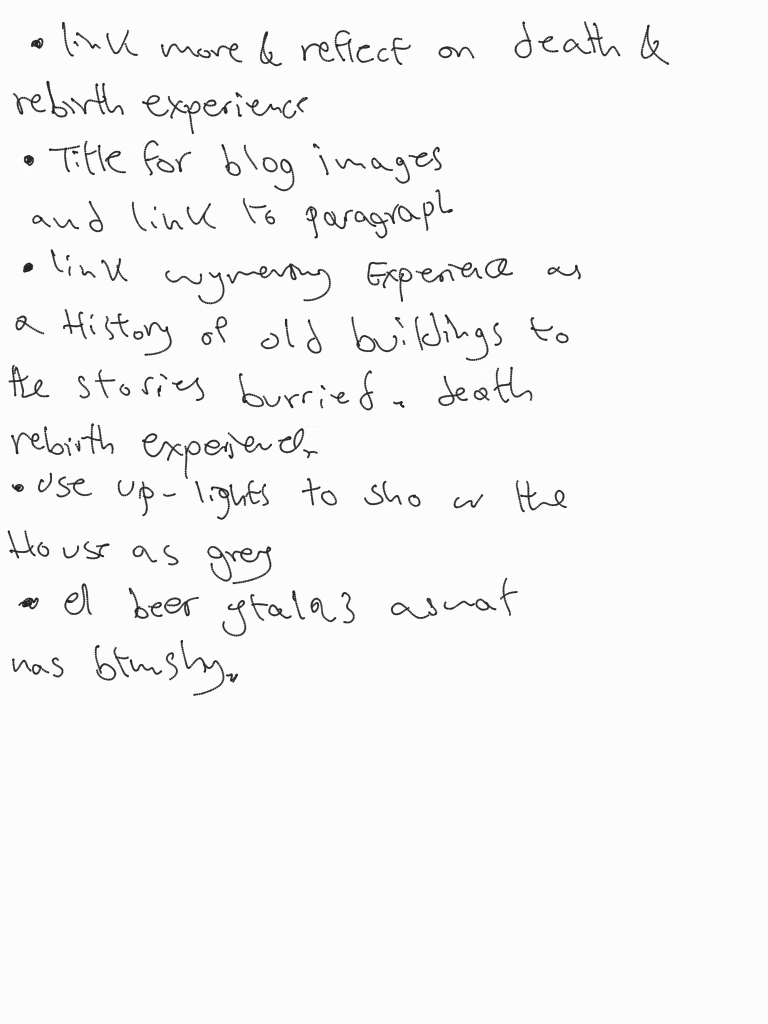 • link more & reflect on death &
rebirth experience
• Title for blog images
and link to paragraph
• link wymering Experience as
a History of old buildings to
the stories burried. death
rebirth experience.
• Use up-lights to show the
House as grey
• el beer ytala3 aswat
nas btmshy.